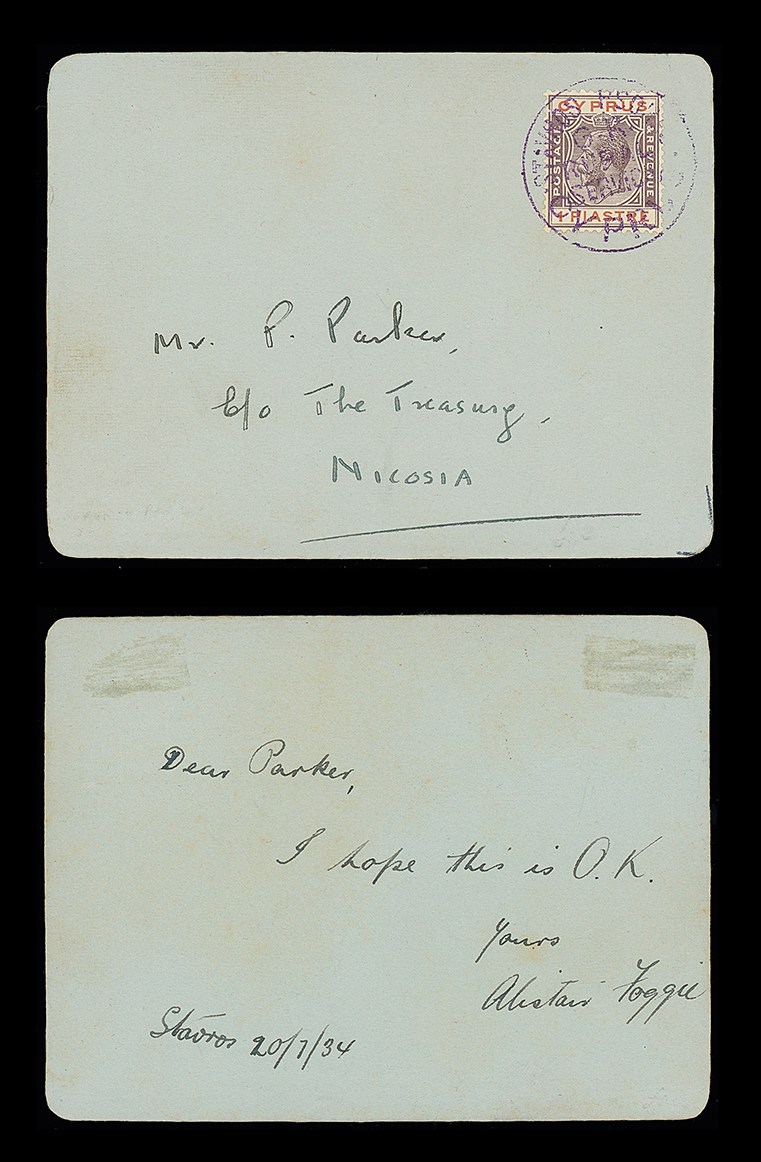 CYPRUS
POSTAGE
& REVENUE
1 PIASTRE
Mr. P. Parker,
c/o The Treasury,
NICOSIA
Dear Parker,
I hope this is O.K.
Yours
Alistair Foggie
Stavros 20/7/34